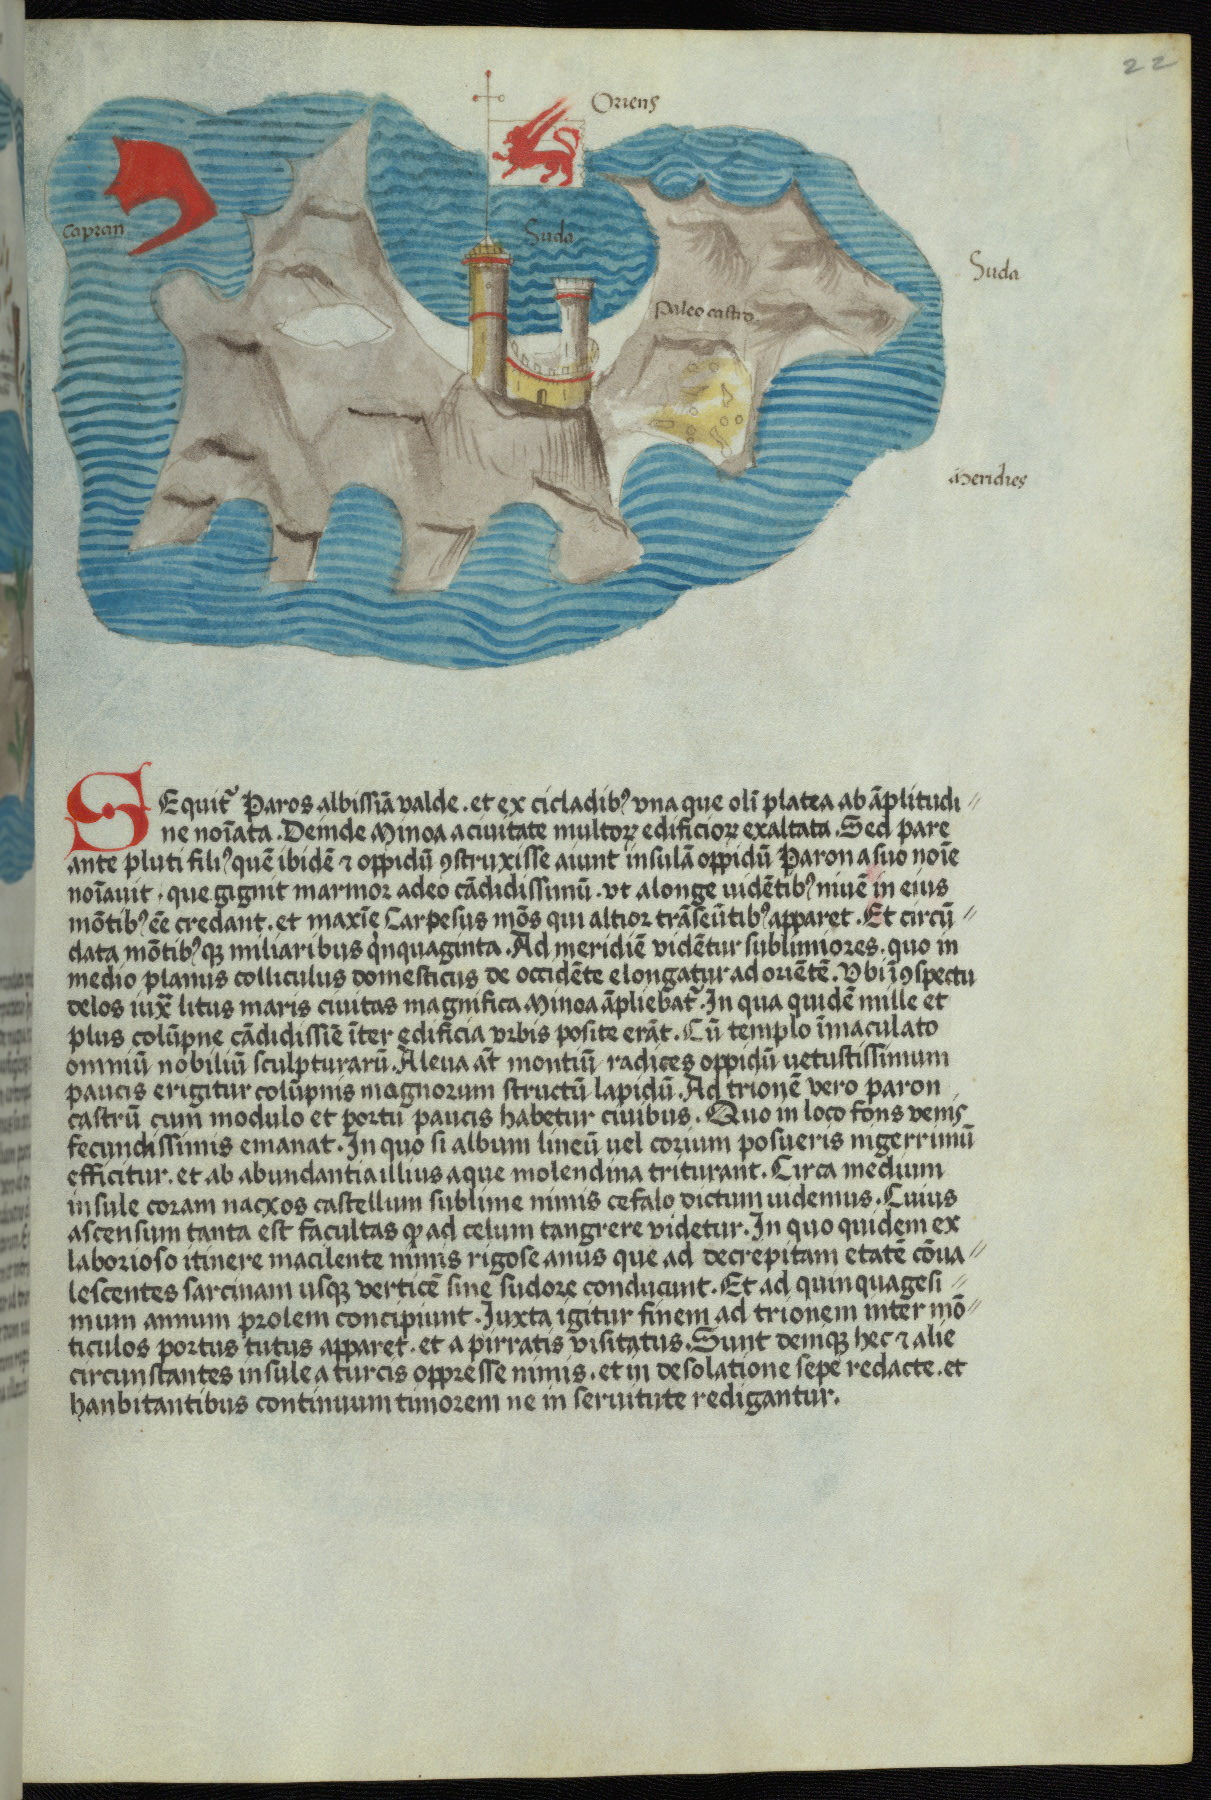 22
Oriens
capran
Suda
Suda
Paleo castro
Meridies
SEquit᷑ Paros albissiā valde . et ex cicladib⁹ vna que oli̅ platea ab āplitudi //
ne noi̅ata . Deinde Minoa a ciuitate multoꝝ edificioꝝ exaltata . Sed pare
ante pluti fili⁹ quē ibidē ⁊ oppidū ꝯstruxisse aiunt insulā oppidū Paron a suo noi̅e
noi̅auit . que gignit marmor adeo cādidissimū . vt a longe uidētib⁹ niuē in eius
mōtib⁹ ēe credant . et maxi̅e Carpesus mōs qui altior trāseūtib⁹ apparet . Et circū //
data mōtib⁹ qꝫ miliaribus qi̅nquaginta . Ad meridiē vidētur sublimiores . quo in
medio planus colliculus domesticus de occidēte elongatur ad oriētē . Vbi i̅ ꝯspectu
delos iux̄ litus maris ciuitas magnifica Minoa āpliebat᷑ . In qua quidē mille et
plus colūpne cādidissiē i̅ter edificia vrbis posite erāt . Cū templo i̅maculato
omniū nobiliū sculpturarū . A leua āt montiū radices oppidū uetustissimum
paucis erigitur colūpnis magnorum structū lapidū . Ad trionē vero paron
castrū cum modulo et portu paucis habetur ciuibus . Quo in loco fons venis
fecundissimis emanat . In quo si album lineū uel corium posueris nigerrimū
efficitur . et ab abundantia illius aque molendina triturant . Circa medium
insule coram nacxos castellum sublime nimis cefalo dictum uidemus . Cuius
ascensum tanta est facultas ꝙ ad celum tangrere videtur . In quo quidem ex
laborioso itinere macilente nimis rigose anus que ad decrepitam etatē cōua //
lescentes sarcinam usqꝫ verticē sine sudore conducunt . Et ad quinquagesi //
mum annum prolem concipiunt . Iuxta igitur finem ad trionem inter mō //
ticulos portus tutus apparet . et a pirratis visitatus . Sunt deniqꝫ hec ⁊ alie
circunstantes insule a turcis oppresse nimis . et in desolatione sepe redacte . et
hanbitantibus continuum timorem ne in seruitute redigantur .